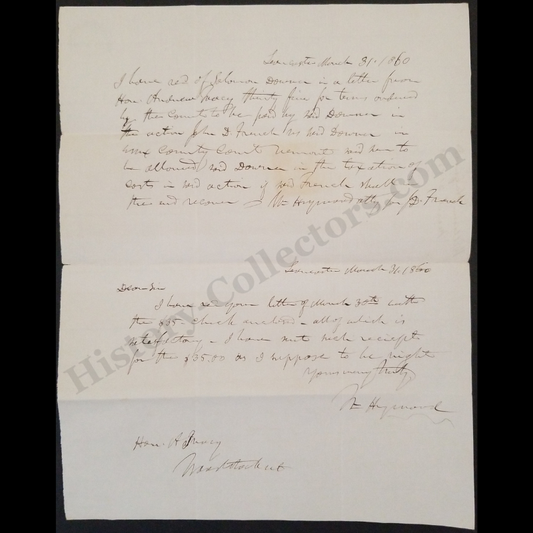 Lancaster March 31. 1860
I have recd of Solomon Downer in a letter from
Hon. Andrew Tracy thirty five for terms ordered
by the Court to be paid by said Downer in
the action John D. French vs said Downer in
County Court Vermont and same to
be allowed said Downer in the taxation of
costs in said action if said French shall
recover Wm Heywood atty for J.D. French
Lancaster March 31. 1860
Dear Sir
I have your letter of March 30th with
the $35. check - all of which is
satisfactory - I have
for the $35.00 as I suppose to be right
Yours very truly
Wm Heywood
Hon. A Tracy
Woodstock Vt
History Collectors.com